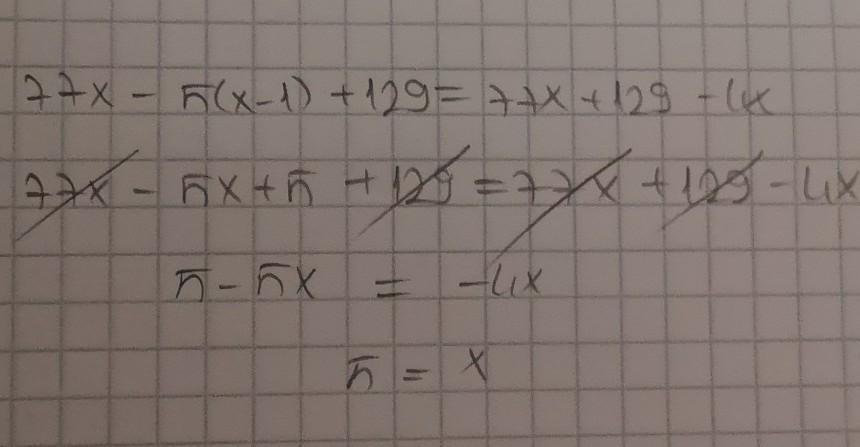 77x - 5(x-1) + 129 = 77x + 129 - 4x
77x - 5x + 5 + 129 = 77x + 129 - 4x
5 - 5x = -4x
5 = x